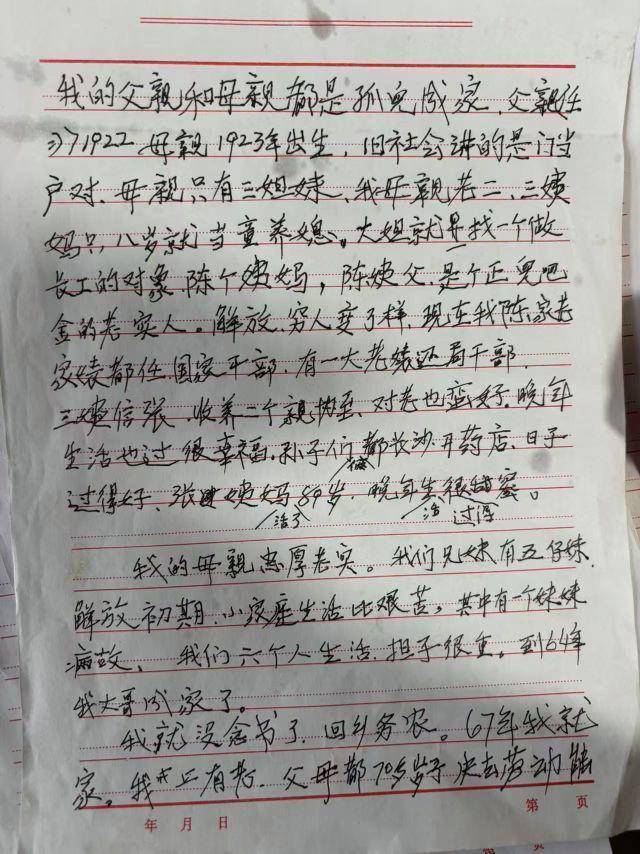 我的父亲和母亲都是孤儿成家、父亲任
1922 母亲1923年出生，旧社会讲的是门当
户对、母亲只有三姐妹、我母亲老二、三姨
妈只八岁就当童养媳。大姐就是找一个做
长工的对象、陈个姨妈，陈姨父、是个正儿吧
金的老实人。解放、穷人变了样、现在我陈家老
家 都任国家干部、有一大 还有干部、
三姨信张、收养二个亲 、对老也蛮好、晚年
生活也过很幸福、孙子们都长沙开药店、日子
过得好、张 姨妈活了89岁，晚年生活过得很甜蜜。
我的母亲忠厚老实。我们兄妹有五仔妹、
解放初期、小家庭生活比艰苦，其中有一个妹妹
病故、我们六个人生活、担子很重。到64年
我大哥成家了。
我就没念书了、回乡务农。67年我就
家。我 上有老、父母都70多岁了 失去劳动能
年 月 日
第 页
第 页